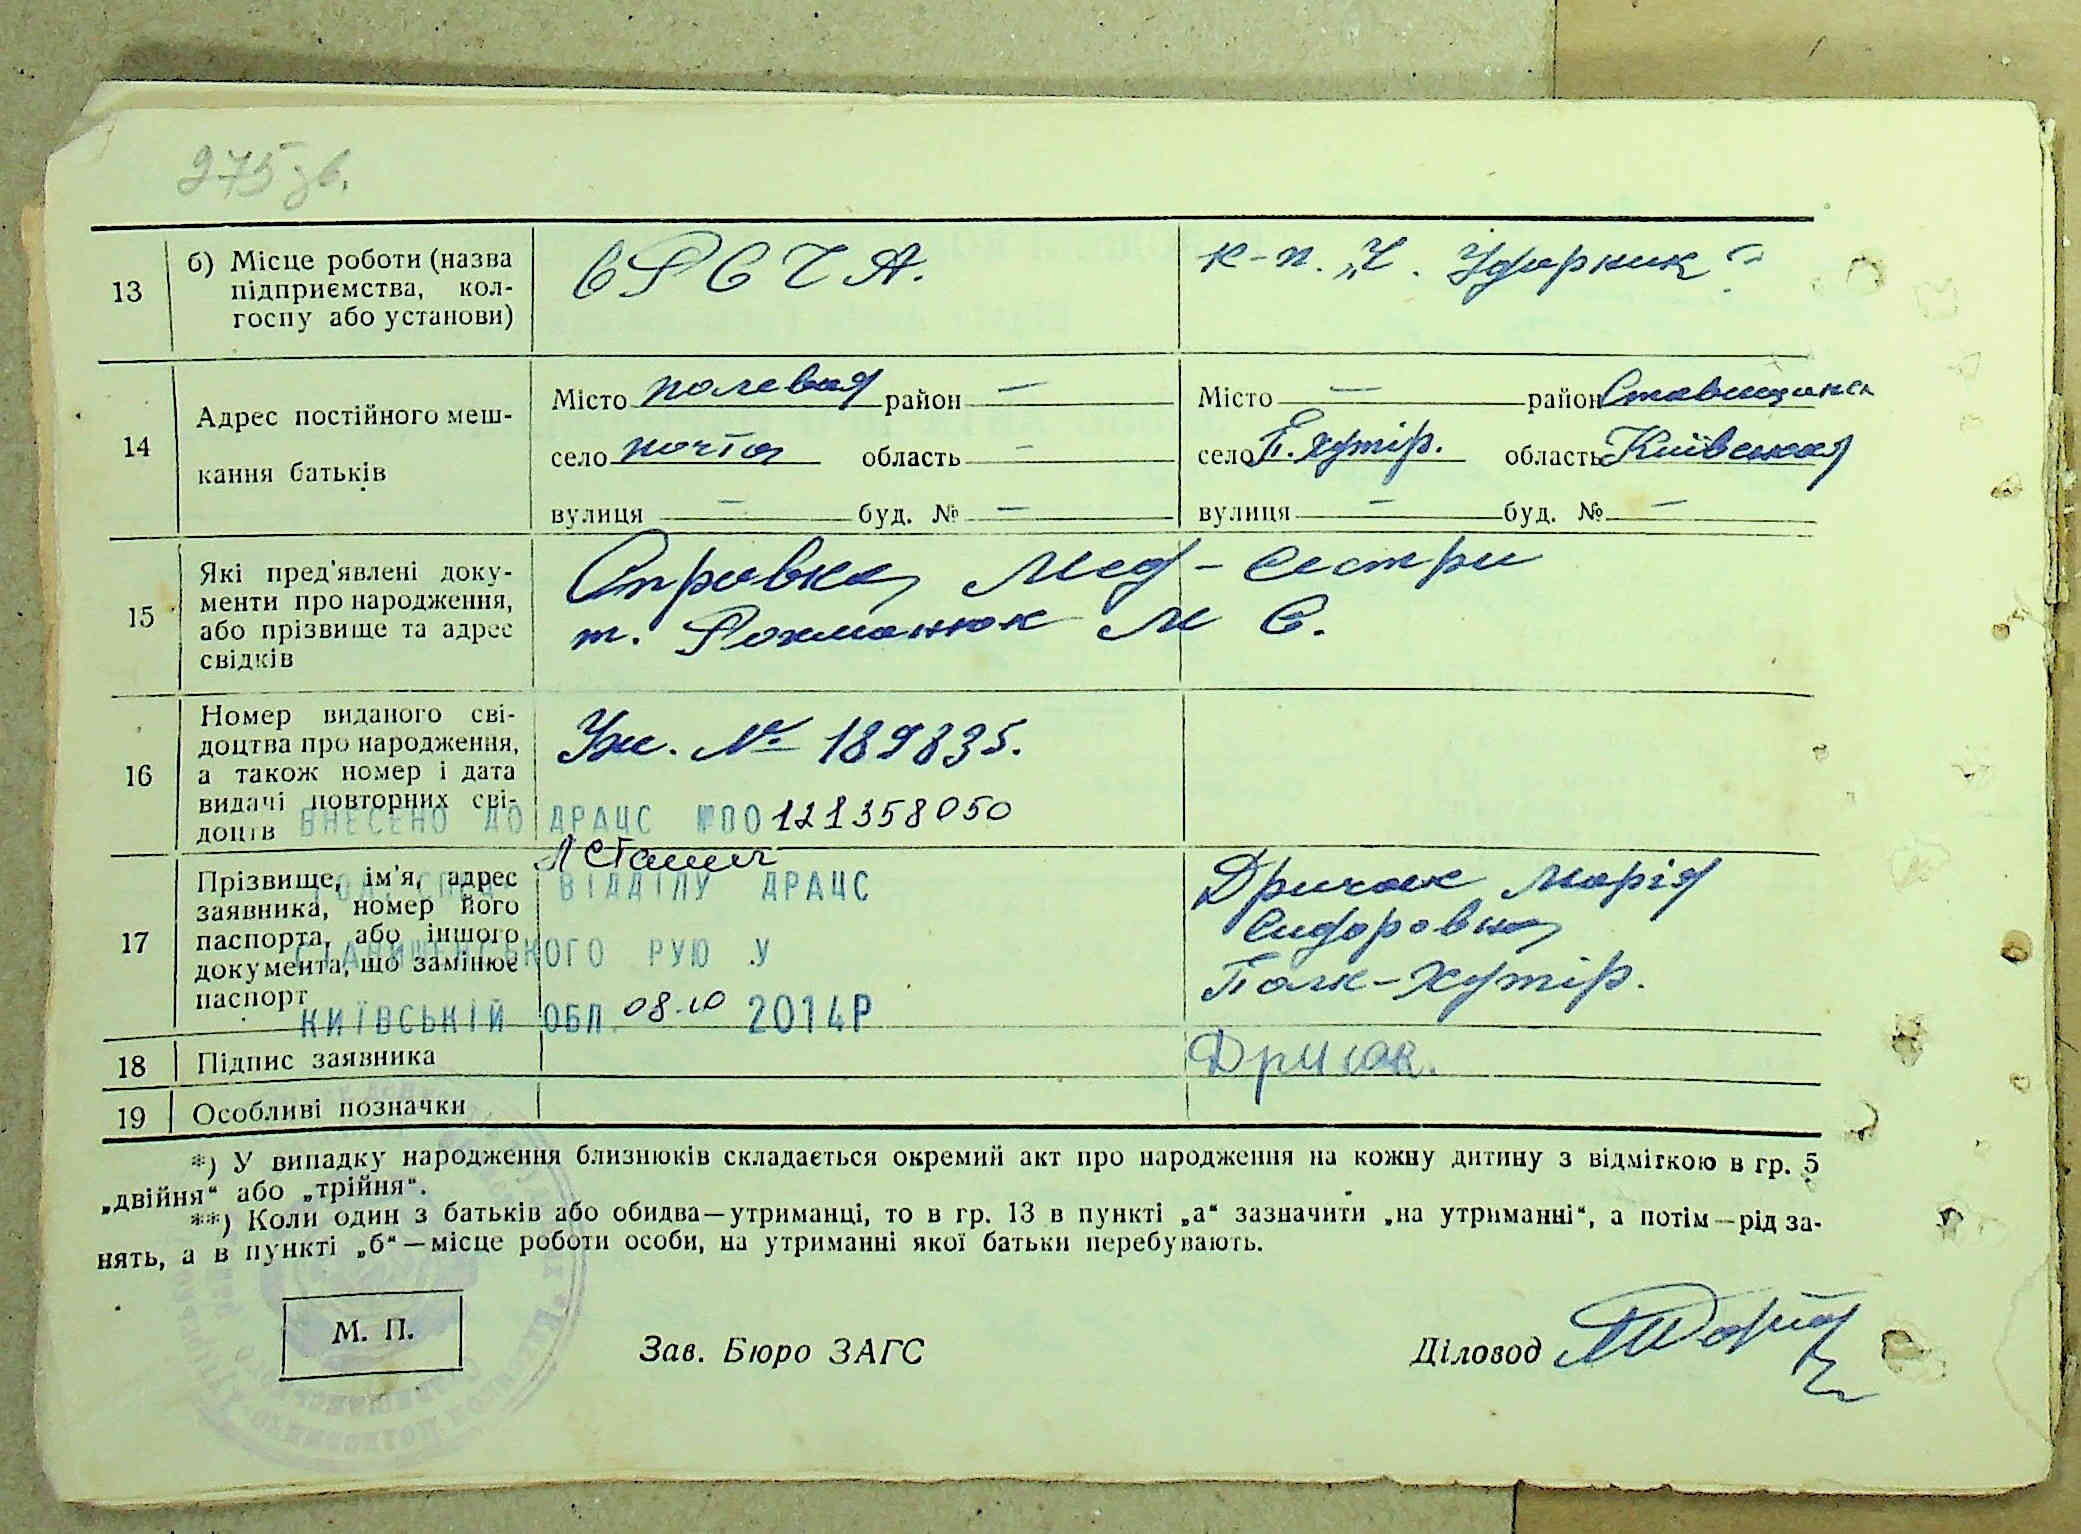 275 зв.
13
б) Місце роботи (назва
підприємства, кол-
госпу або установи)
в Р С Ч А.
к-п. „Ч. Ударник"
14
Адрес постійного меш-
кання батьків
Місто полевая район —
село почта область —
вулиця — буд. № —
Місто — район Ставищанск
село П. хутір. область Київская
вулиця — буд. № —
15
Які пред'явлені доку-
менти про народження,
або прізвище та адрес
свідків
Справка, Мед-сестри
т. Рохманюк М С.
16
Номер виданого сві-
доцтва про народження,
а також номер і дата
видачі повторних сві-
доцтв
Ук. № 189835.
ВНЕСЕНО ДО ДРАЦС №ПО 121358050
17
Прізвище, ім'я, адрес
заявника, номер його
паспорта, або іншого
документа, що замінює
паспорт
ВІДДІЛУ ДРАЦС
СТАВИЩЕНСЬКОГО РУЮ У
КИЇВСЬКІЙ ОБЛ. 08.10 2014Р
Марія
Сидоровна,
Полк-Хутір.
18
Підпис заявника
19
Особливі позначки
*) У випадку народження близнюків складається окремий акт про народження на кожну дитину з відміткою в гр. 5
„двійня" або „трійня".
**) Коли один з батьків або обидва—утриманці, то в гр. 13 в пункті „а" зазначити „на утриманні", а потім—рід за-
нять, а в пункті „б"—місце роботи особи, на утриманні якої батьки перебувають.
М. П.
Зав. Бюро ЗАГС
Діловод